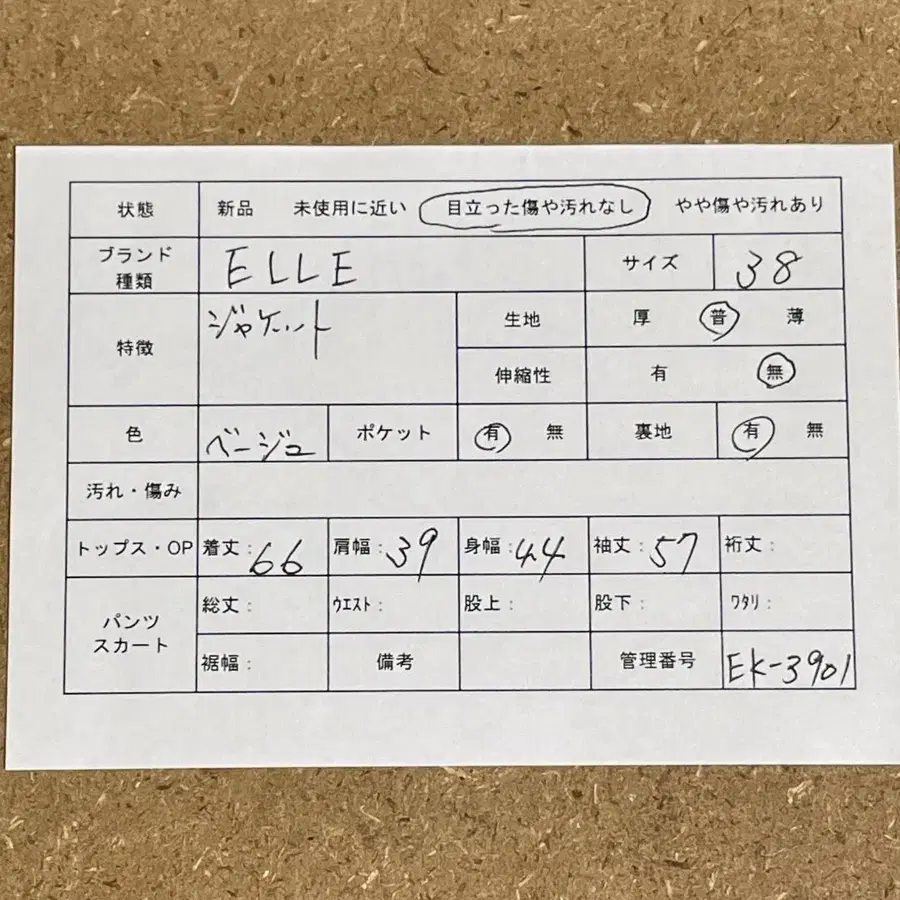 状態 新品 未使用に近い 目立った傷や汚れなし やや傷や汚れあり
ブランド種類 ELLE サイズ 38
特徴 ジャケット 生地 厚 普 薄
伸縮性 有 無
色 ベージュ ポケット 有 無 裏地 有 無
汚れ・傷み
トップス・OP 着丈:66 肩幅:39 身幅:44 袖丈:57 裄丈:
パンツ 総丈: ウエスト: 股上: 股下: ワタリ:
スカート 裾幅: 備考 管理番号 EK-3901